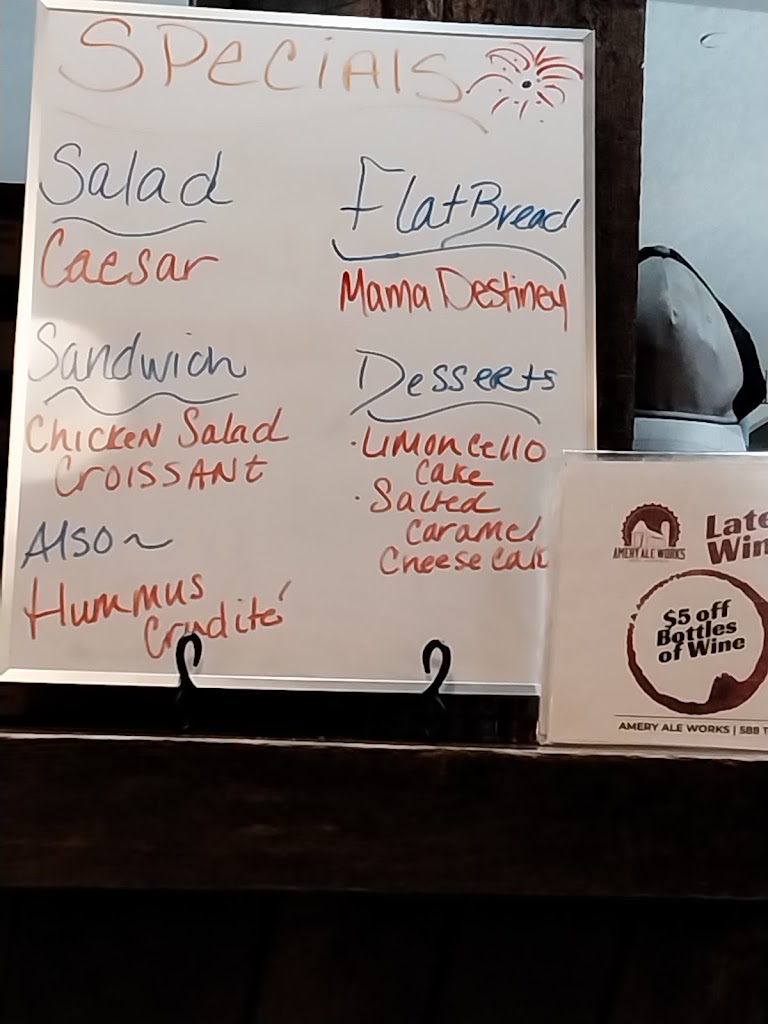 SPECIALS
Salad
Caesar
Sandwich
Chicken Salad
Croissant
Also ~
Hummus
Crudité
FlatBread
Mama Destiney
Desserts
· Limoncello
Cake
· Salted
Caramel
Cheese Cake
AMERY ALE WORKS
Late
Win
$5 off
Bottles
of Wine
AMERY ALE WORKS | 588 T